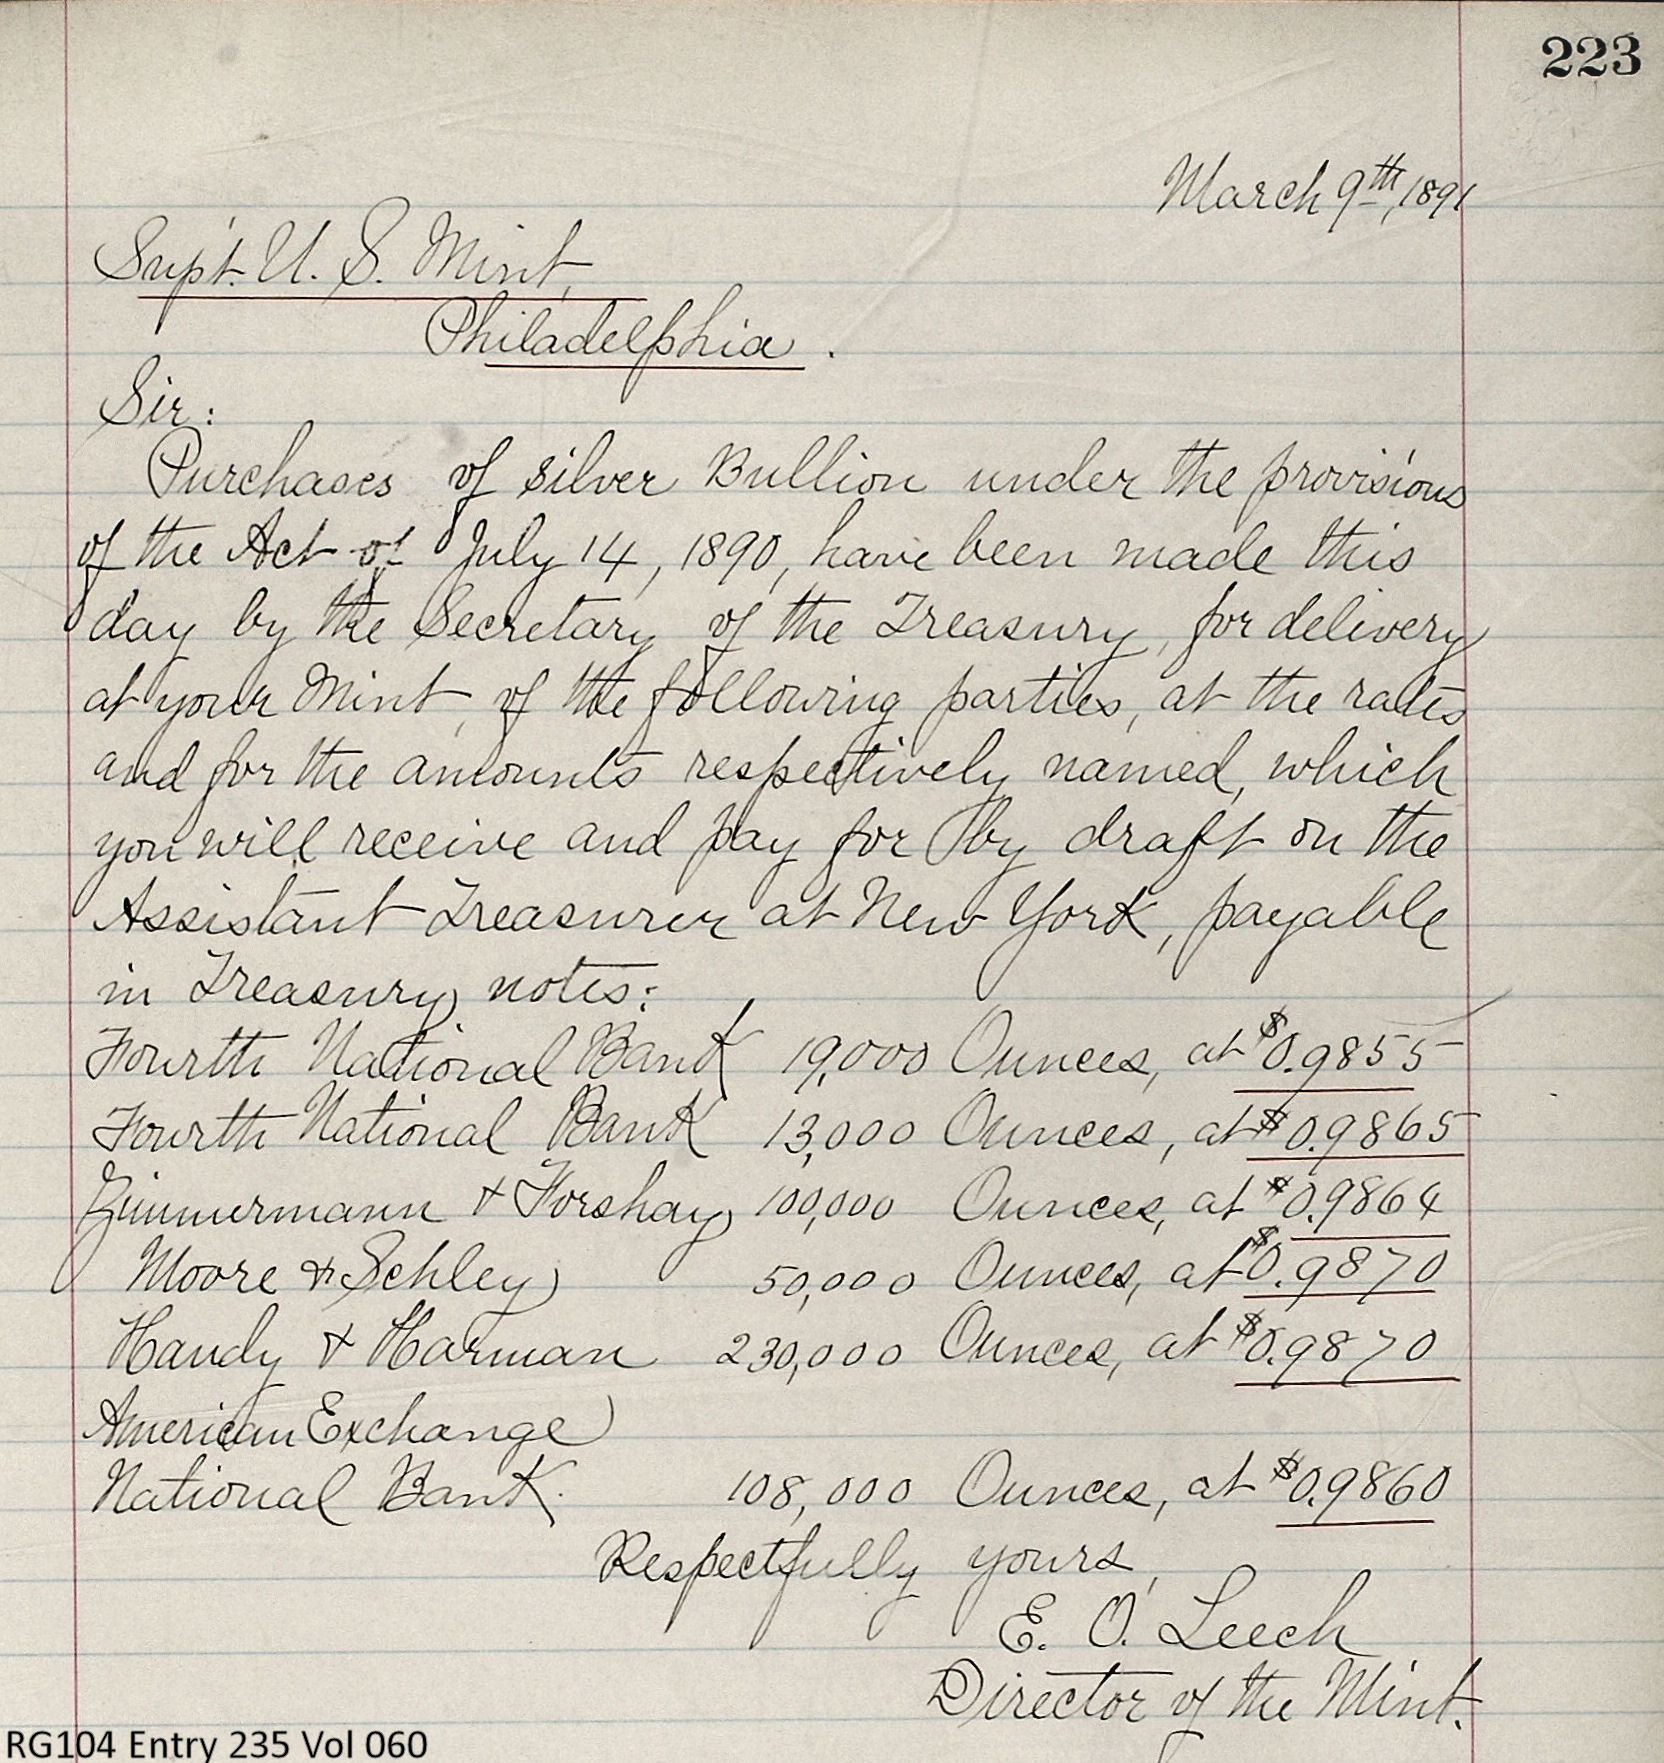 223
March 9th, 1891
Sup't. U. S. Mint,
Philadelphia.
Sir:
Purchases of silver Bullion under the provisions
of the Act of July 14, 1890, have been made this
day by the Secretary of the Treasury, for delivery
at your Mint, of the following parties, at the rates
and for the amounts respectively named, which
you will receive and pay for by draft on the
Assistant Treasurer at New York, payable
in Treasury notes:
Fourth National Bank 19,000 Ounces, at $0.9855
Fourth National Bank 13,000 Ounces, at $0.9865
Zimmermann & Forshay 100,000 Ounces, at $0.9864
Moore & Schley 50,000 Ounces, at $0.9870
Handy & Harman 230,000 Ounces, at $0.9870
American Exchange
National Bank. 108,000 Ounces, at $0.9860
Respectfully yours,
E. O. Leech
Director of the Mint.
RG104 Entry 235 Vol 060